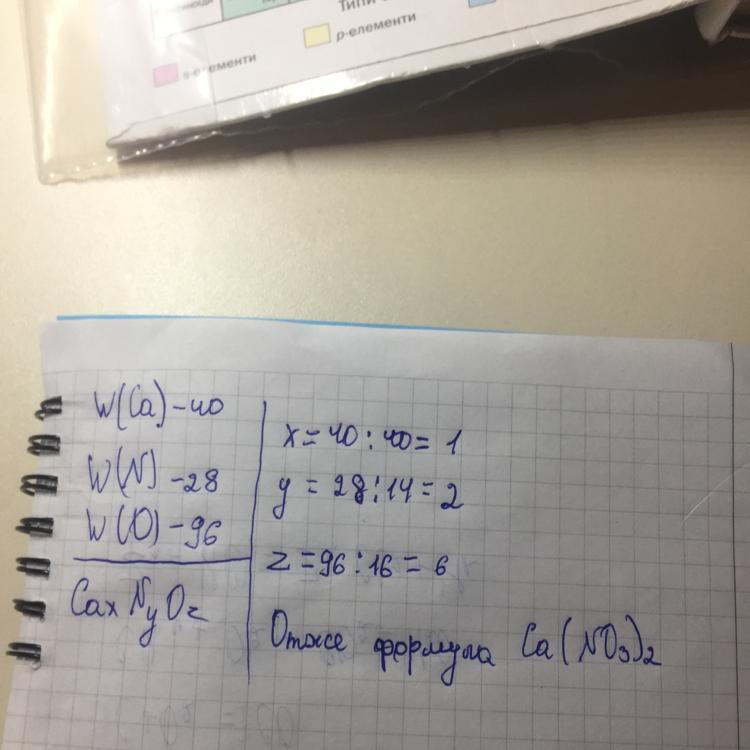 Типи
p-елементи
s-елементи
W(Ca)-40
W(N)-28
W(O)-96
CaxNyOz
x=40:40=1
y=28:14=2
z=96:16=6
Отже формула Ca(NO3)2